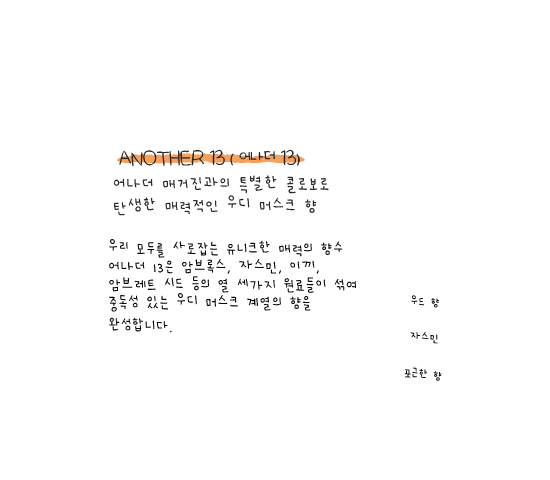 ANOTHER 13 ( 어나더 13)
어나더 매거진과의 특별한 콜로보로
탄생한 매력적인 우디 머스크 향
우리 모두를 사로잡는 유니크한 매력의 향수
어나더 13은 암브록스, 자스민, 이끼,
암브레트 시드 등의 열 세가지 원료들이 섞여
중독성 있는 우디 머스크 계열의 향을
완성합니다.
우드 향
자스민
포근한 향